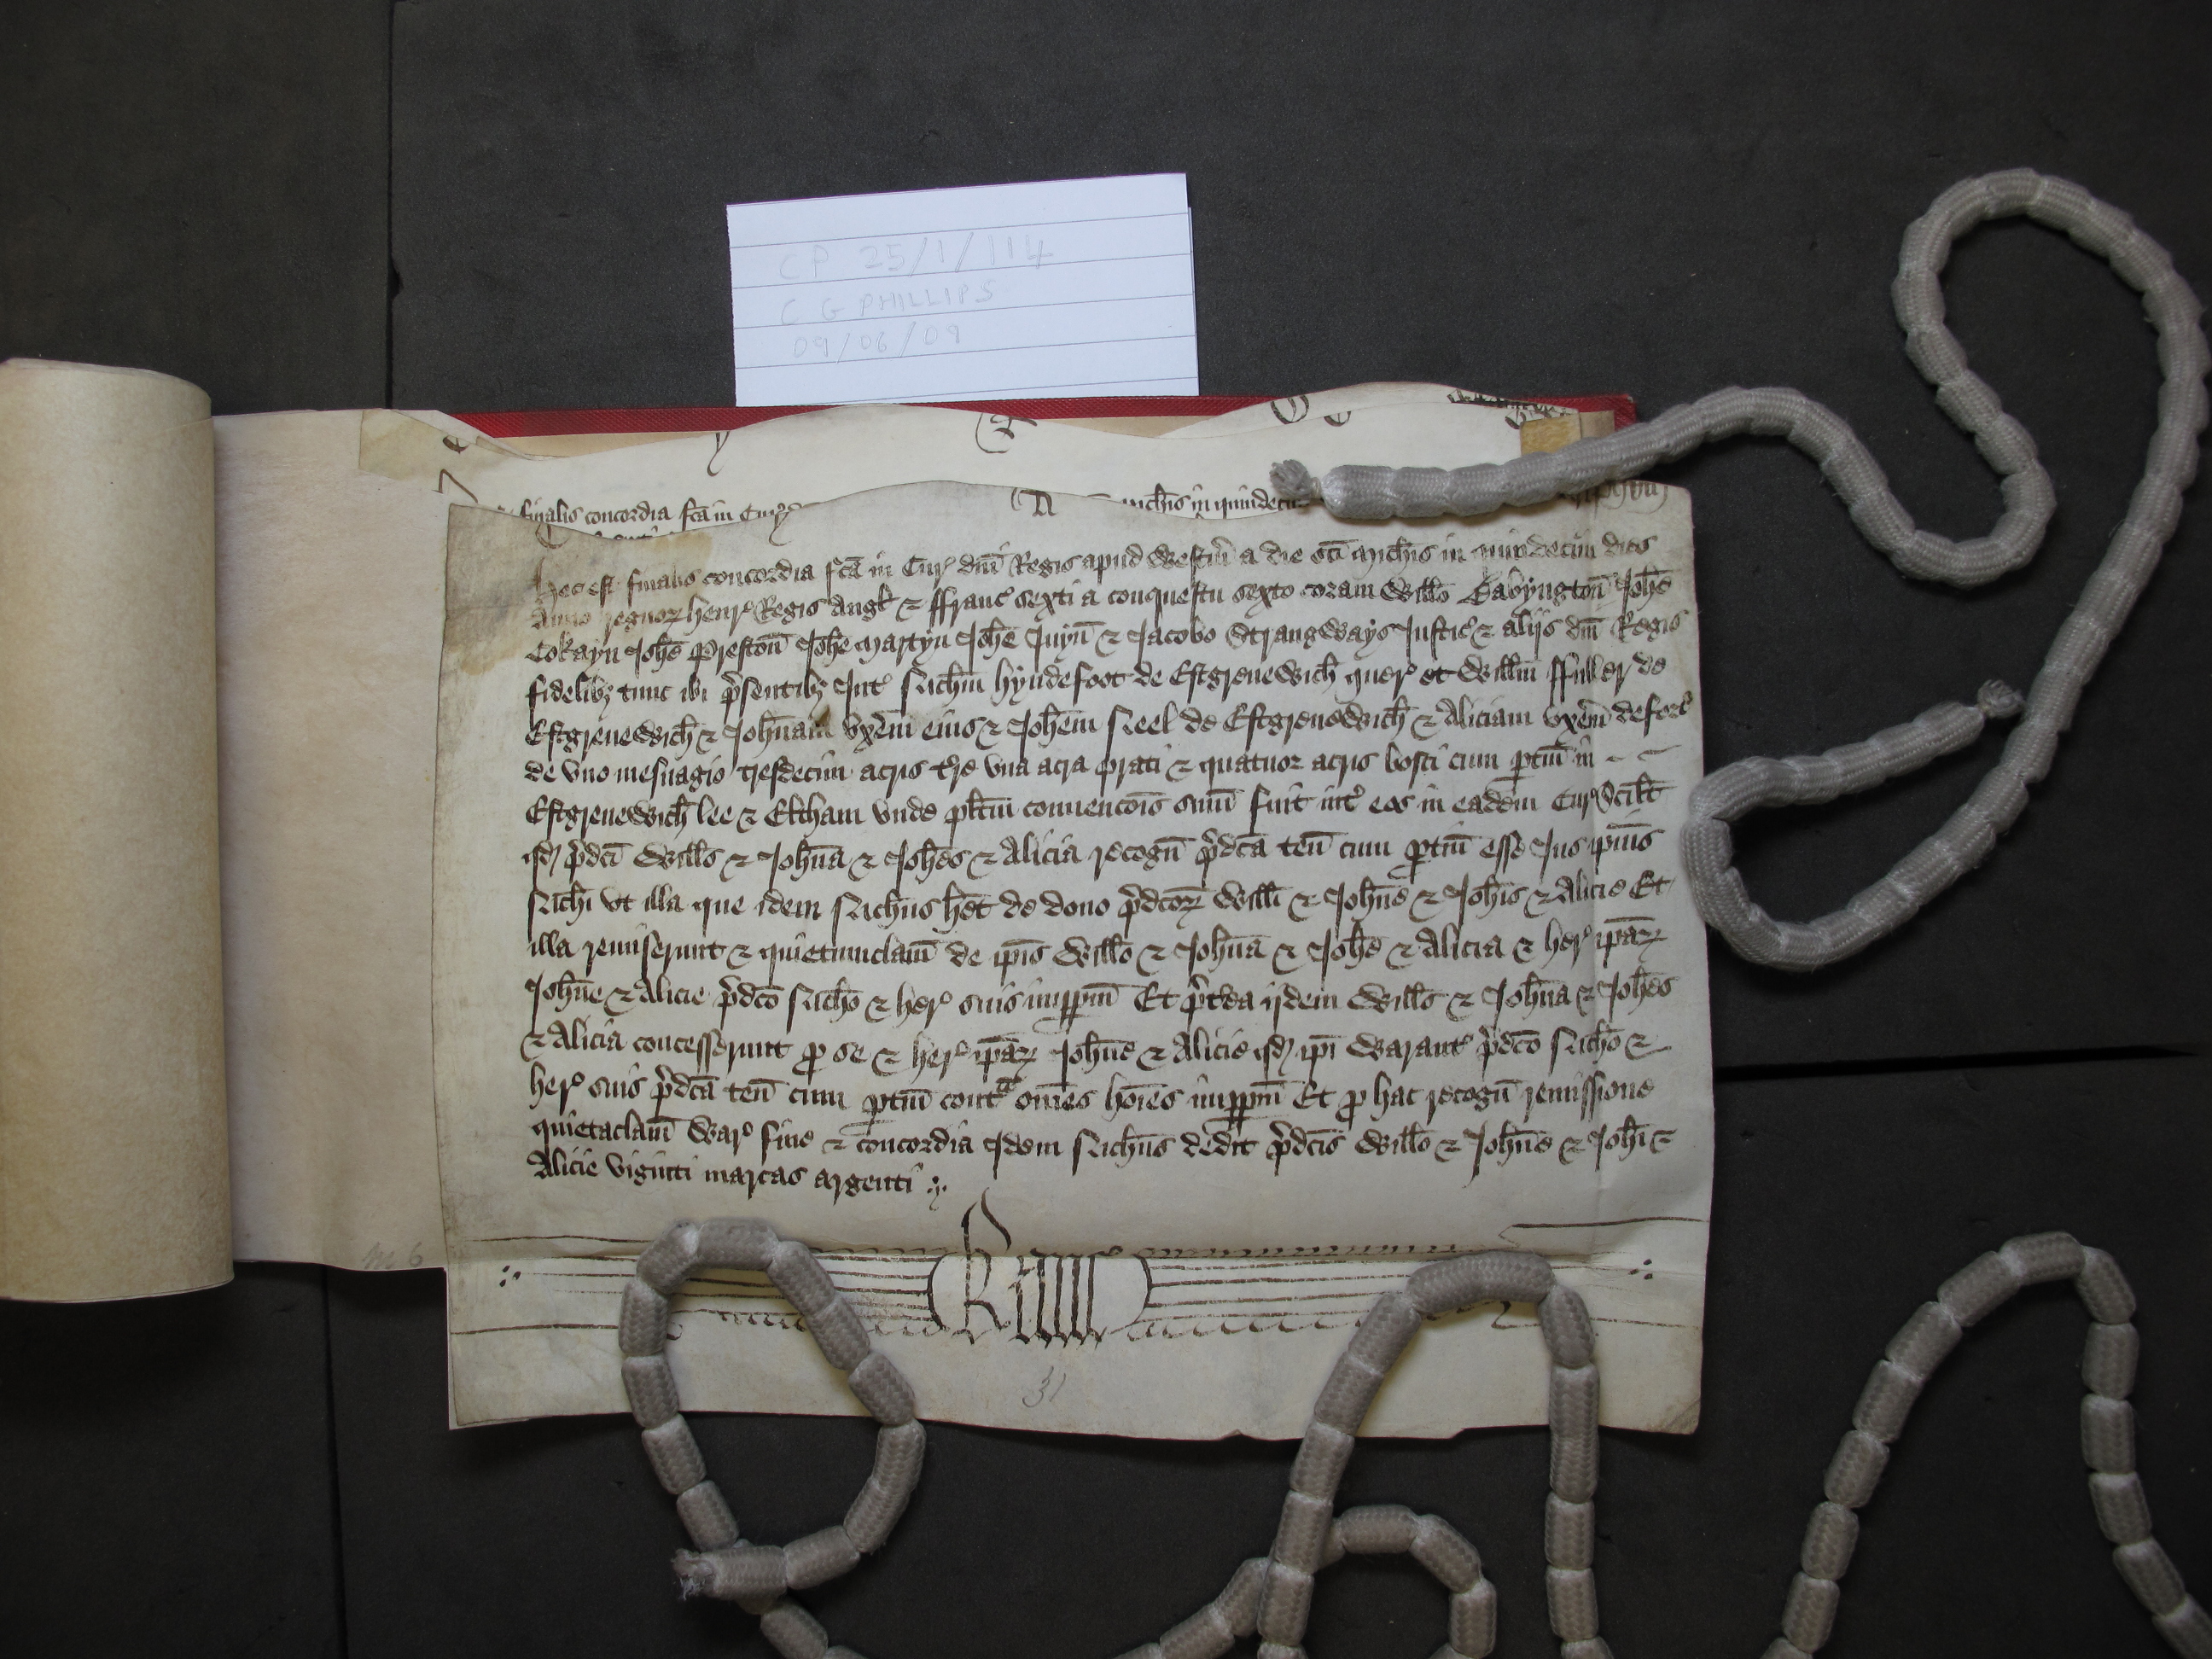 CP 25/1/114
C G PHILLIPS
09/06/09
finalis concordia fc̃a in Cur̉
mich̃is in quindecim
Hec est finalis concordia fc̃a in Cur̉ dñi Regis apud Westm̃ a die sc̃i Mich̃is in quindecim dies
Anno regnoꝝ Henr̉ Regis Angl̃ & Ffranc̉ sexti a conquestu sexto coram Will̃o Babyngton̄ Joh̃e
Cokayn Joh̃e Preston̄ Joh̃e Martyn Joh̃e Juyn̄ & Jacobo Strangways Justic̉ & alijs dñi Regis
fidelibꝫ tunc ibi p̉sentibꝫ Int̉ Ric̃hm Hyndefoot de Estgrenewich̃ quer̉ et Will̃m Ffuller de
Estgrenewich̃ & Joh̃nam vx̃em eius & Joh̃em Reel de Estgrenewich̃ & Aliciam vx̃em deforc̉
de vno mesuagio tresdecim acris t̉re vna acra prati & quatuor acris bosci cum ꝑtin̄ in
Estgrenewich̃ Lee & Eltham vnde pl̃itm conuenc̃ois sum̄ fuit int̉ eos in eadem Cur̉ Scil̃t
qd̃ p̉dc̃i Will̃s & Joh̃na & Joh̃es & Alicia recogn̄ p̉dc̃a ten̄ cum ꝑtin̄ esse Jus ip̃ius
Ric̃hi vt illa que idem Ric̃hus h̃et de dono p̉dc̃oꝝ Will̃i & Joh̃ne & Joh̃is & Alicie Et
illa remiserunt & quietumclam̄ de ip̃is Will̃o & Joh̃na & Joh̃e & Alicia & her̉ ip̃aꝝ
Joh̃ne & Alicie p̉dc̃o Ric̃ho & her̉ suis imꝑpm̄ Et p̉t̉ea ijdem Will̃s & Joh̃na & Joh̃es
& Alicia concesserunt ꝓ se & her̉ ip̃aꝝ Joh̃ne & Alicie qd̃ ip̃i Warant̉ p̉dc̃o Ric̃ho &
her̉ suis p̉dc̃a ten̄ cum ꝑtin̄ contᵃ om̃es ho̅i̅es imꝑpm̄ Et ꝓ hac recogn̄ remissione
quietaclam̄ War̉ fine & concordia Idem Ric̃hus dedit p̉dc̃is Will̃o & Joh̃ne & Joh̃i &
Alicie viginti marcas argenti
31